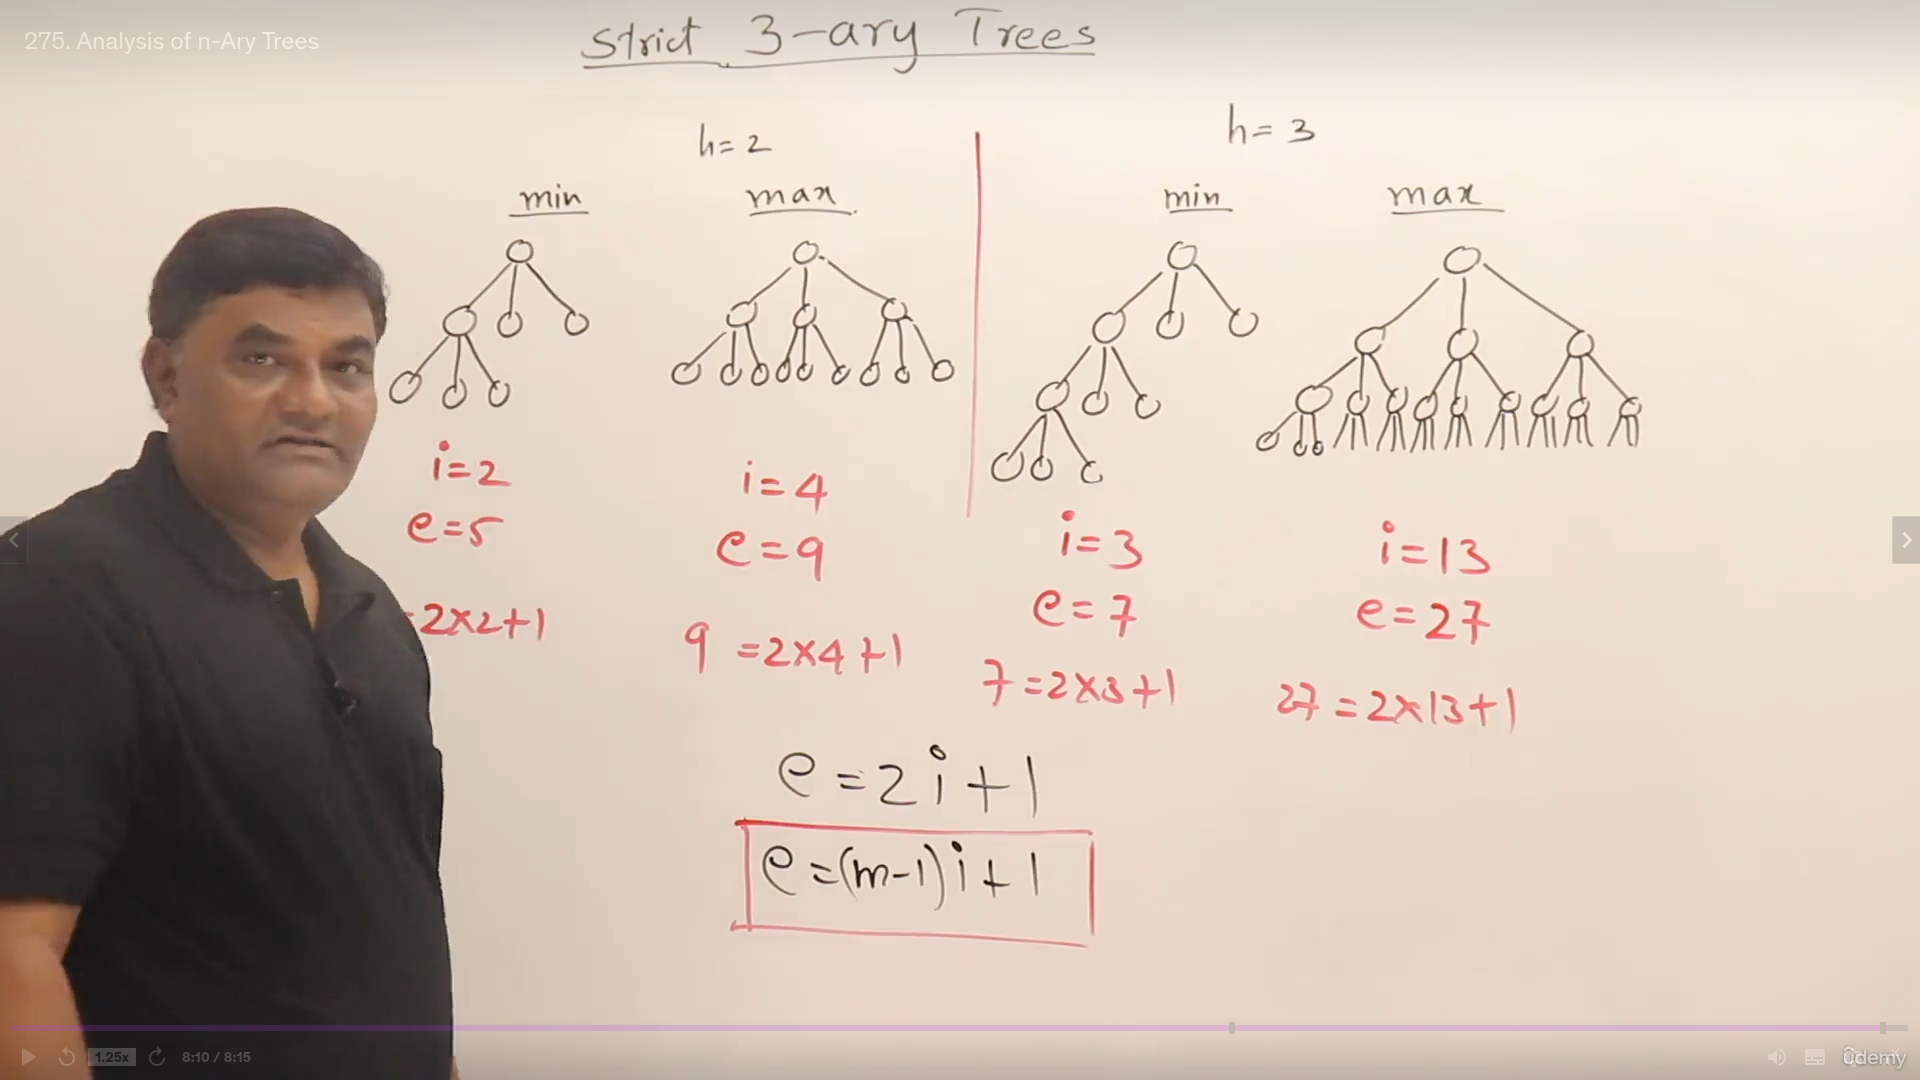 275. Analysis of n-Ary Trees
Strict 3-ary Trees
h=2
min
max
i=2
e=5
=2x2+1
i=4
e=9
9 =2x4+1
h=3
min
max
i=3
e=7
7=2x3+1
i=13
e=27
27=2x13+1
e=2i+1
e=(m-1)i+1
1.25x
8:10 / 8:15
ûdemy